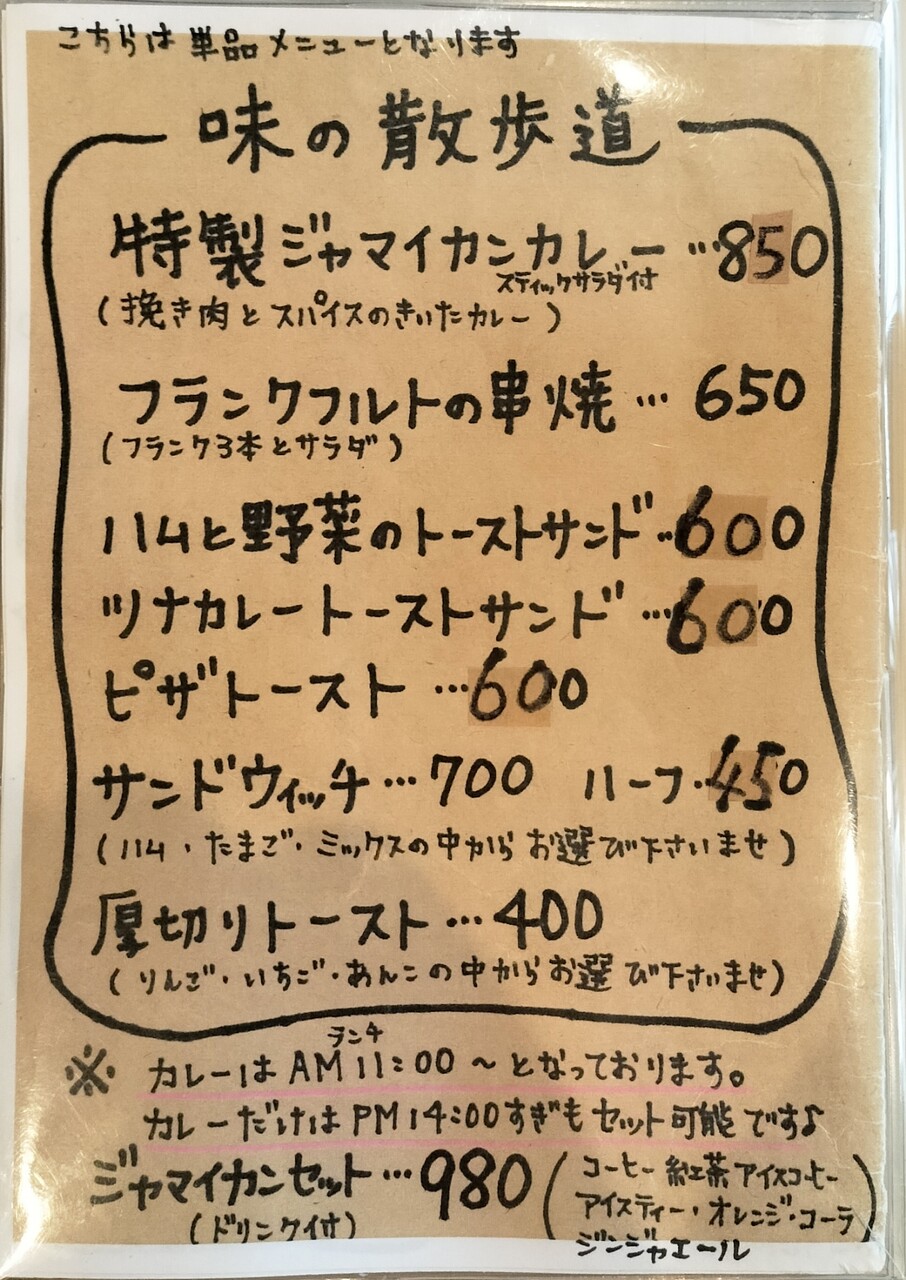 こちらは単品メニューとなります
味の散歩道
特製ジャマイカンカレー…850
スティックサラダ付
(挽き肉とスパイスのきいたカレー)
フランクフルトの串焼…650
(フランク3本とサラダ)
ハムと野菜のトーストサンド…600
ツナカレートーストサンド…600
ピザトースト…600
サンドウィッチ…700 ハーフ…450
(ハム・たまご・ミックスの中からお選び下さいませ)
厚切りトースト…400
(りんご・いちご・あんこの中からお選び下さいませ)
ランチ
※カレーはAM11:00~となっております。
カレーだけはPM14:00すぎもセット可能です♪
ジャマイカンセット…980
(ドリンク付)
(コーヒー 紅茶 アイスコーヒー
アイスティー・オレンジ・コーラ
ジンジャエール)